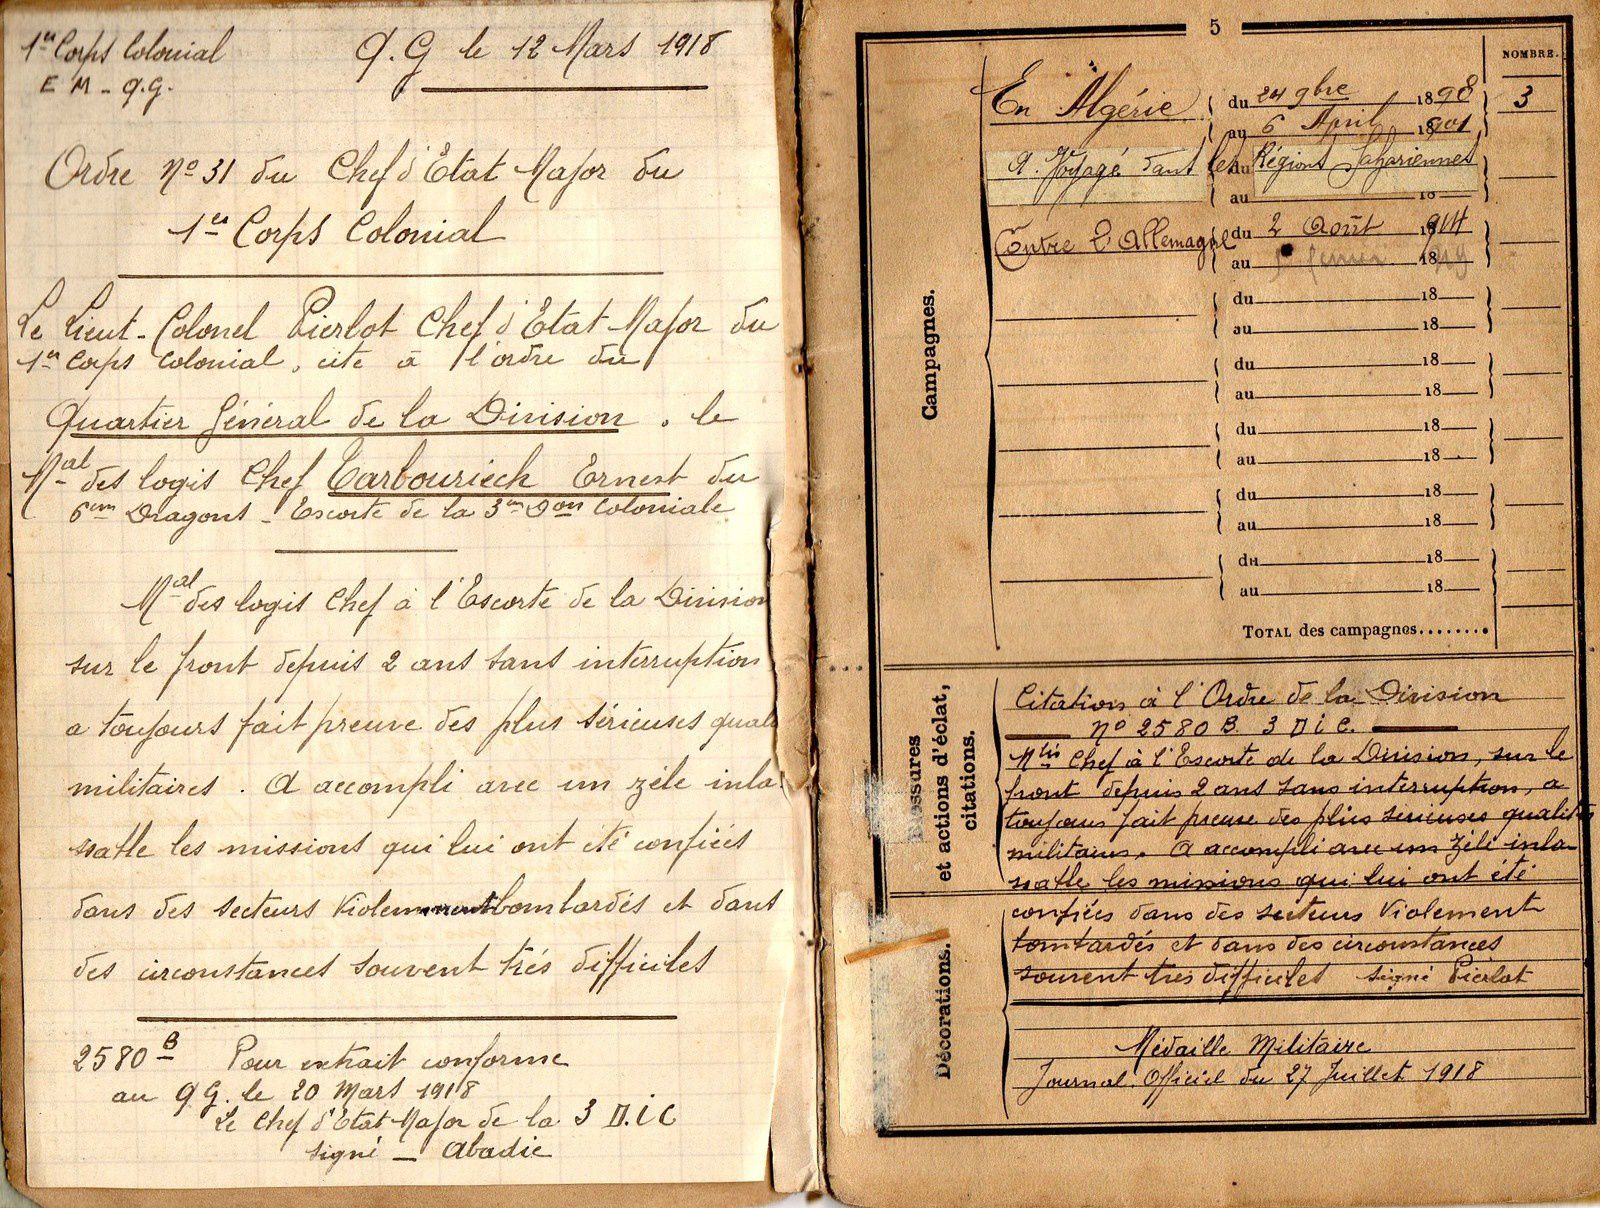 1er Corps Colonial
E M - Q.G.
Q.G le 12 Mars 1918
Ordre No 31 du Chef d'Etat Major du
1er Corps Colonial
Le Lieut-Colonel Pierlot Chef d'Etat Major du
1er Corps Colonial, cite à l'ordre du
Quartier Général de la Division, le
Mal des logis Chef Tarbouriech Ernest du
6em Dragons - Escorte de la 3em Don Coloniale
Mal des logis Chef à l'Escorte de la Division
sur le front depuis 2 ans sans interruption
a toujours fait preuve des plus sérieuses quali
militaires. A accompli avec un zèle inla-
ssable les missions qui lui ont été confiées
dans des secteurs violemment bombardés et dans
des circonstances souvent très difficiles
2580 B Pour extrait conforme
au QG. le 20 Mars 1918
Le Chef d'Etat Major de la 3 D.i C
signé - Abadie
5
NOMBRE.
Campagnes.
En Algérie du 24 9bre 1898 3
au 6 April 18901
A Voyagé dans les du Régions Sahariennes
au 18
Contre l'Allemagne du 2 Août 1914
au 18
du 18
au 18
du 18
au 18
du 18
au 18
du 18
au 18
du 18
au 18
TOTAL des campagnes........
Blessures
et actions d'éclat,
citations.
Citation à l'Ordre de la Division
No 2580 B. 3 D i C.
Mlis Chef à l'Escorte de la Division, sur le
front depuis 2 ans sans interruption, a
toujours fait preuve des plus sérieuses qualités
militaires. A accompli avec un zèlé inla-
ssable les missions qui lui ont été
confiées dans des secteurs violement
bombardés et dans des circonstances
souvent très difficiles signé Pierlot
Décorations.
Médaille Militaire
Journal Officiel du 27 Juillet 1918